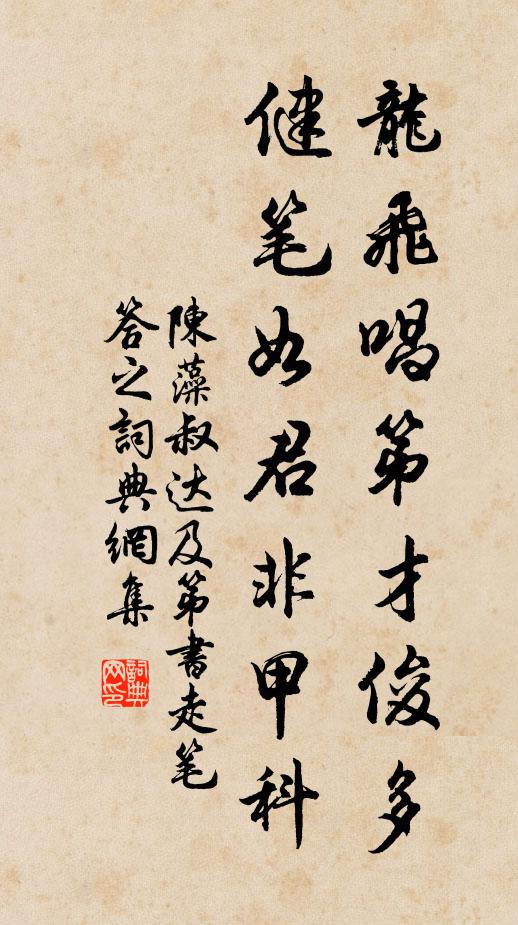 龍飛唱第才俊多
健笔如君非甲科
陳藻叔达及第書走笔
答之詞典網集
詞典网印